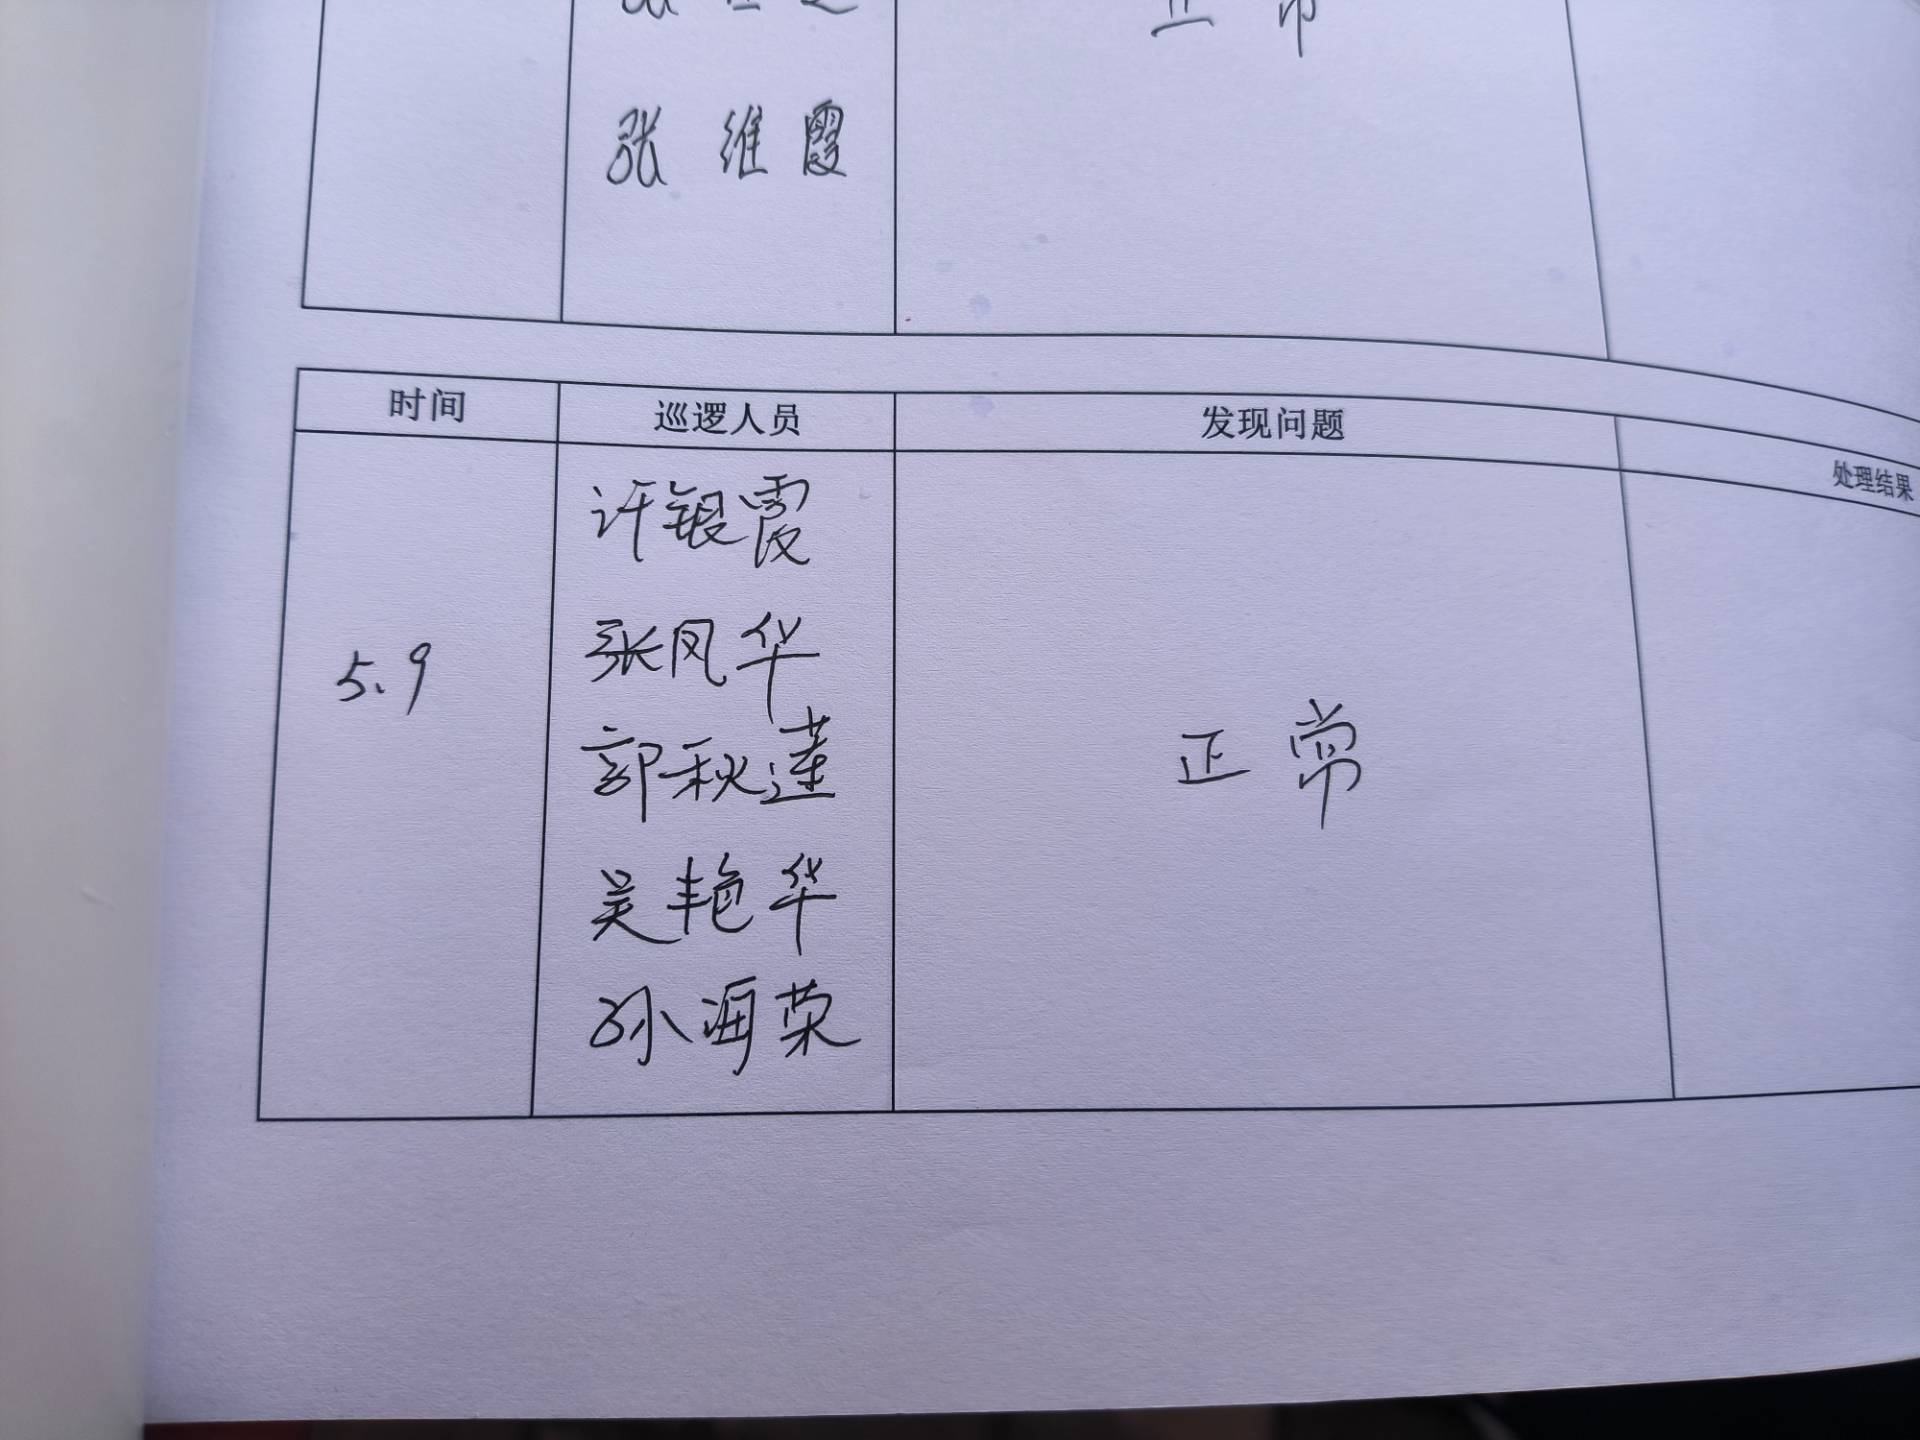 正常
张维霞
时间 巡逻人员 发现问题 处理结果
许银霞
张凤华
5.9
郭秋莲
正常
吴艳华
孙海荣